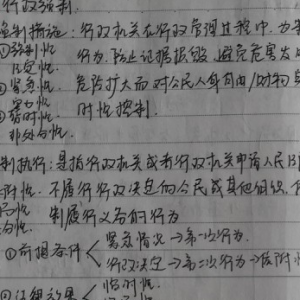 行政强制.
强制措施: 行政机关在行政管理过程中, 为
①强制性 行为, 防止证据损毁, 避免危害发
②紧急性 危险扩大而对公民人身自由/财物
③暂时性 时性控制.
非处分性
制执行: 是指行政机关或者行政机关申请人民
不履行行政决定的公民或其他组织,
制履行义务的行为
①前提条件 紧急情况→第一次行为.
行政决定→第二次行为→
临时性.